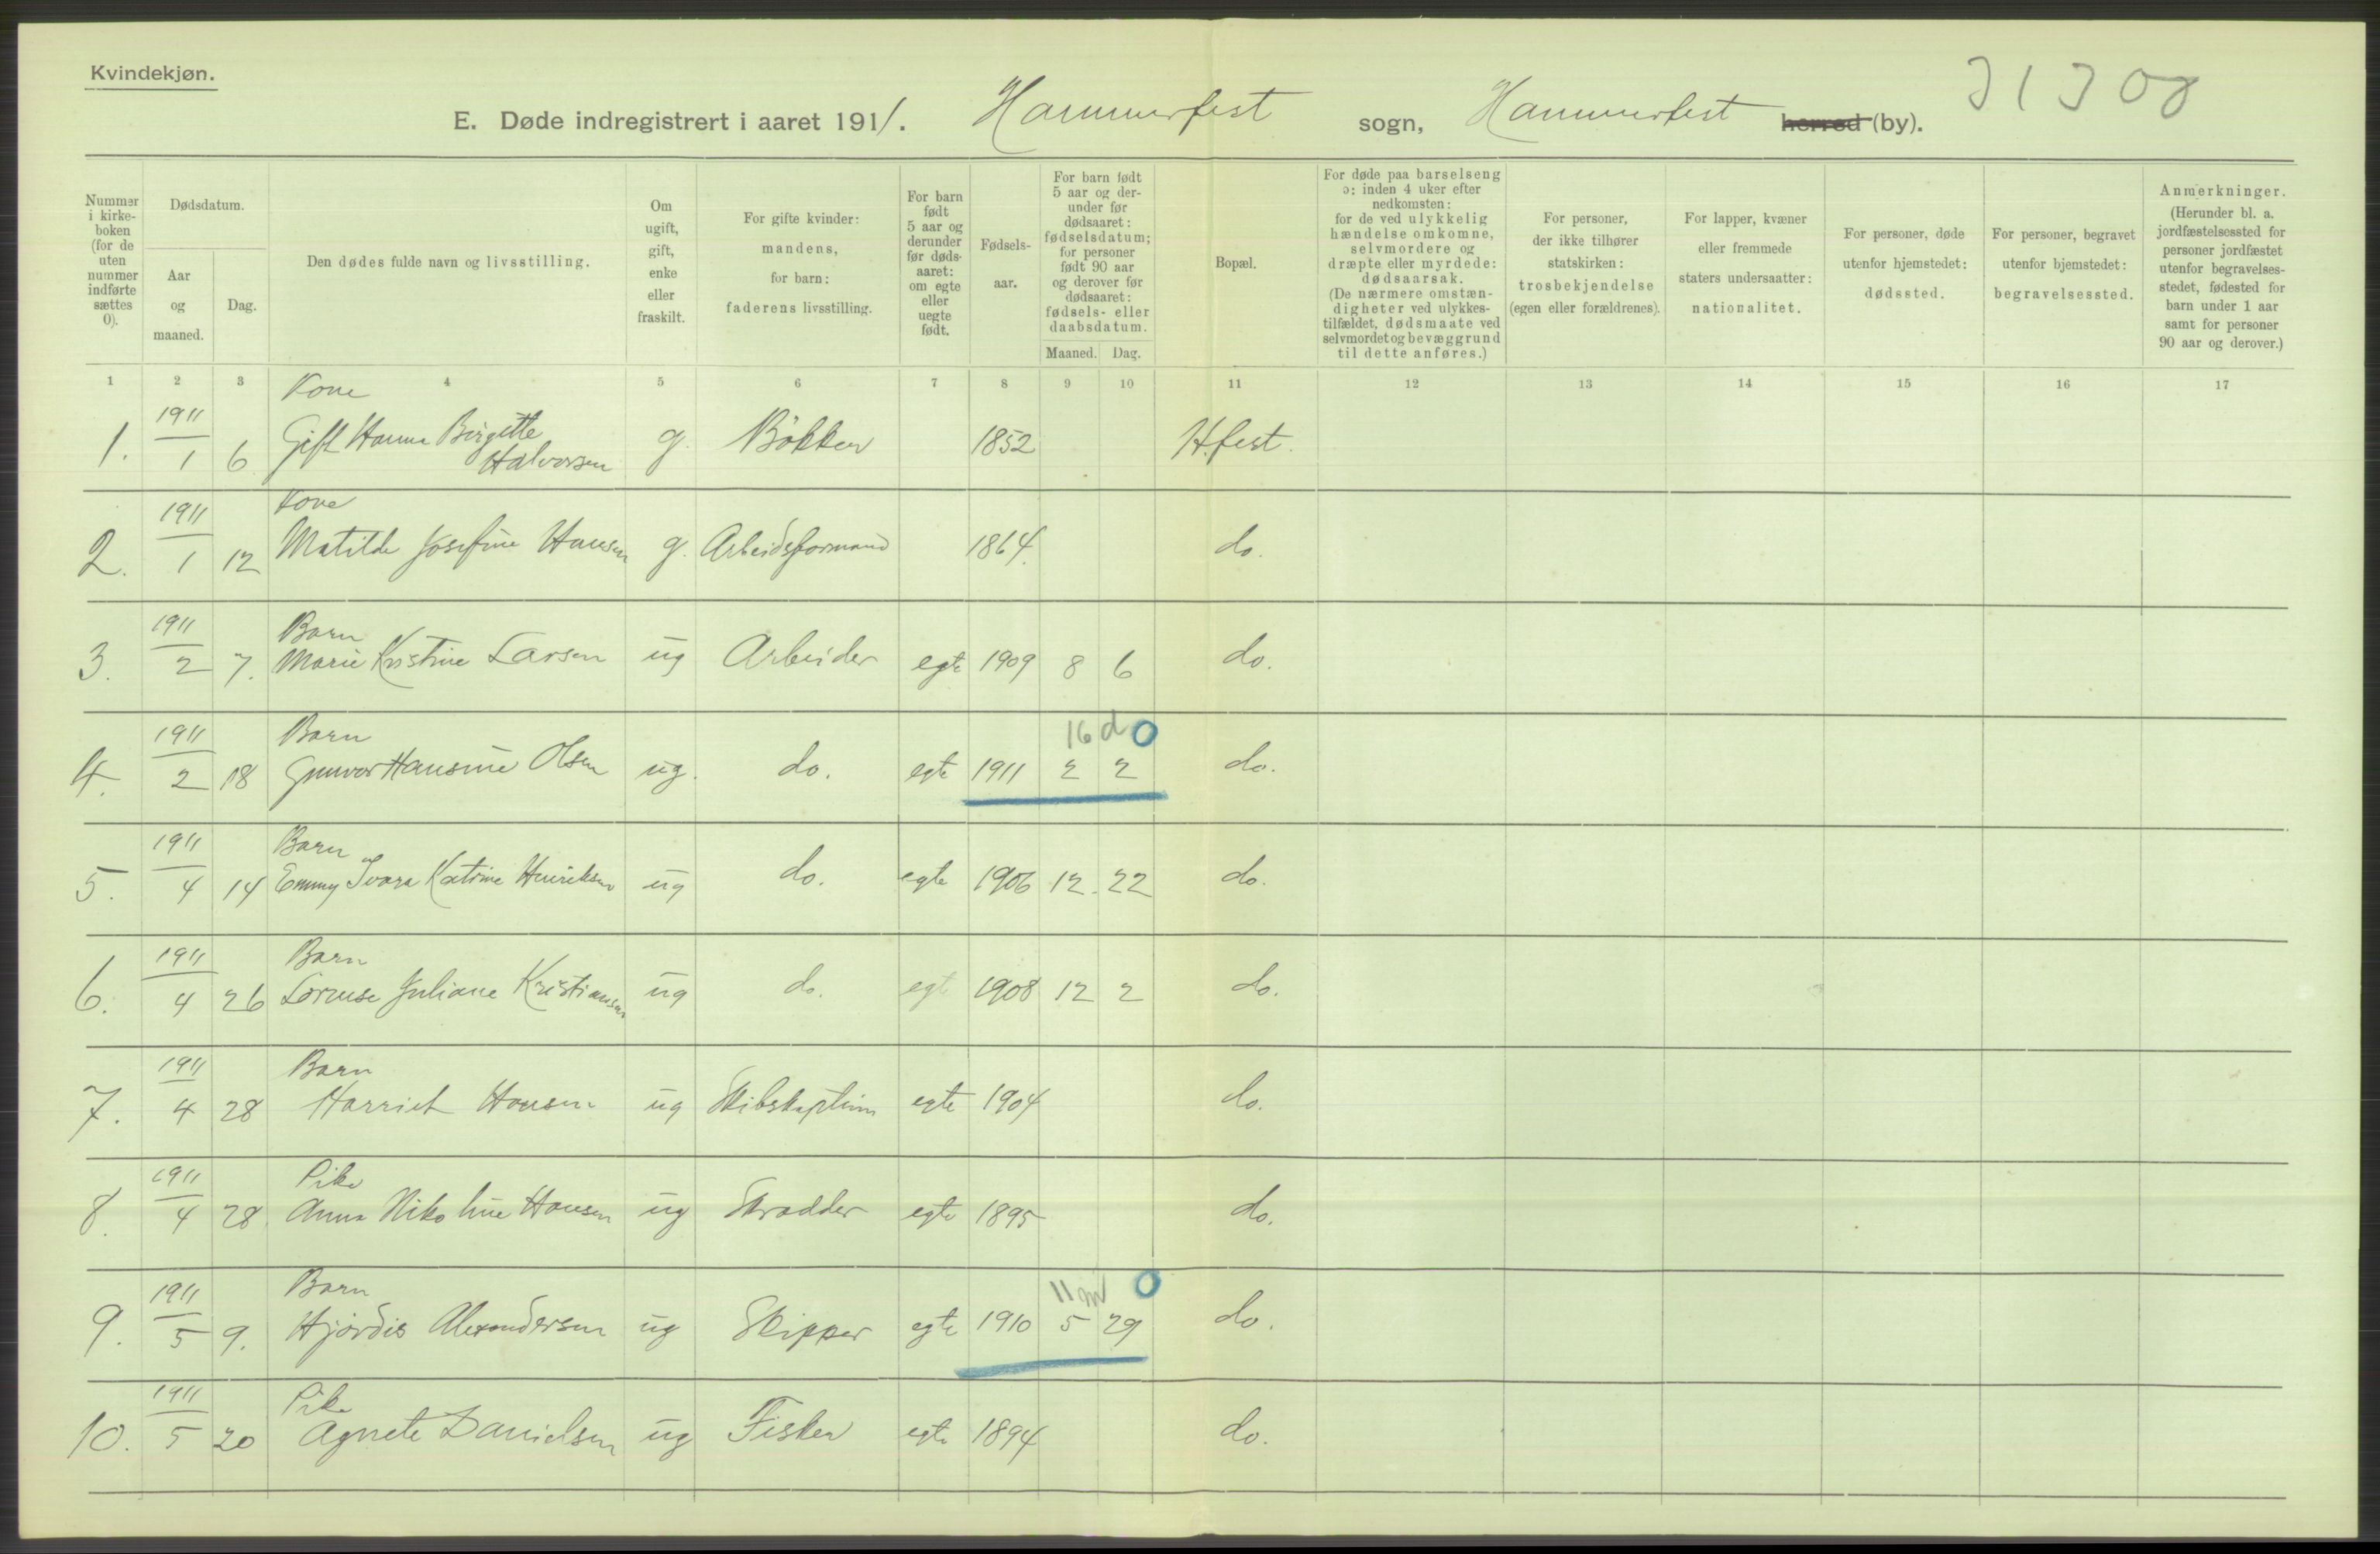 Kvindekjøn.
E. Døde indregistrert i aaret 1911. Hammerfest sogn, Hammerfest herred (by). 31308
Nummer i kirke- boken (for de uten nummer indførte sættes 0).
Dødsdatum.
Aar og maaned.
Dag.
Den dødes fulde navn og livsstilling.
Om ugift, gift, enke eller fraskilt.
For gifte kvinder: mandens, for barn: faderens livsstilling.
For barn født 5 aar og derunder før døds- aaret: om egte eller uegte født.
Fødsels- aar.
For barn født 5 aar og der- under før dødsaaret: fødselsdatum; for personer født 90 aar og derover før dødsaaret: fødsels- eller daabsdatum.
Maaned. Dag.
Bopæl.
For døde paa barselseng ɔ: inden 4 uker efter nedkomsten: for de ved ulykkelig hændelse omkomne, selvmordere og dræpte eller myrdede: dødsaarsak. (De nærmere omstæn- digheter ved ulykkes- tilfældet, dødsmaate ved selvmordet og bevæggrund til dette anføres.)
For personer, der ikke tilhører statskirken: trosbekjendelse (egen eller forældrenes).
For lapper, kvæner eller fremmede staters undersaatter: nationalitet.
For personer, døde utenfor hjemstedet: dødssted.
For personer, begravet utenfor bjemstedet: begravelsessted.
Anmerkninger. (Herunder bl. a. jordfæstelsessted for personer jordfæstet utenfor begravelses- stedet, fødested for barn under 1 aar samt for personer 90 aar og derover.)
1 2 3 4 5 6 7 8 9 10 11 12 13 14 15 16 17
1911 Kone
1. 1 6 Gift Hanna Birgitte Halvorsen g. Bökker 1852 H.fest.
1911 Kone
2. 1 12 Matilde Josefine Hansen g. Arbeidsformand 1864. do.
1911 Barn
3. 2 7. Marie Kristine Larsen ug Arbeider egte 1909 8 6 do.
1911 Barn 16 d 0
4. 2 18 Gunvor Hansine Olsen ug. do. egte 1911 2 2 do.
1911 Barn
5. 4 14 Emmy Ivara Katrine Henriksen ug do. egte 1906 12. 22 do.
1911 Barn
6. 4 26 Lorense Juliane Kristiansen ug do. egt 1908 12 2 do.
1911 Barn
7. 4 28 Harriet Hansen ug Skibskaptein egte 1904 do.
1911 Pike
8. 4 28 Anna Nikoline Hansen ug Skrædder egte 1895 do.
1911 Barn 11 m 0
9. 5 9. Hjördis Alexandersen ug Skipper egte 1910 5 29 do.
1911 Pike
10. 5 20 Agnete Danielsen ug Fisker egte 1894 do.